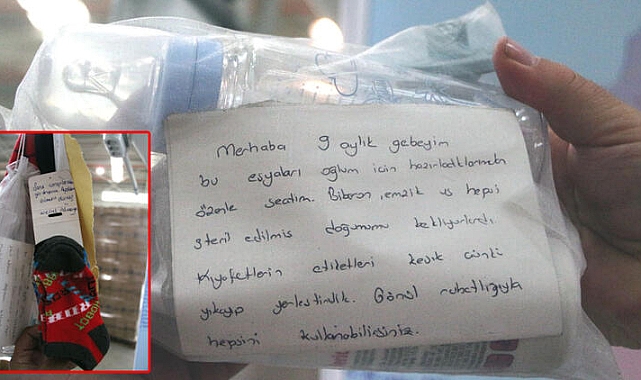 Merhaba 9 aylık gebeyim
bu eşyaları oğlum için hazırladıklarımdan
özenle seçtim. Biberon, emzik vs hepsi
steril edilmiş doğumumu bekliyorlardı
Kıyafetlerin etiketleri kesik çünkü
yıkayıp yerleştirdik. Gönül rahatlığıyla
hepsini kullanabilirsiniz.